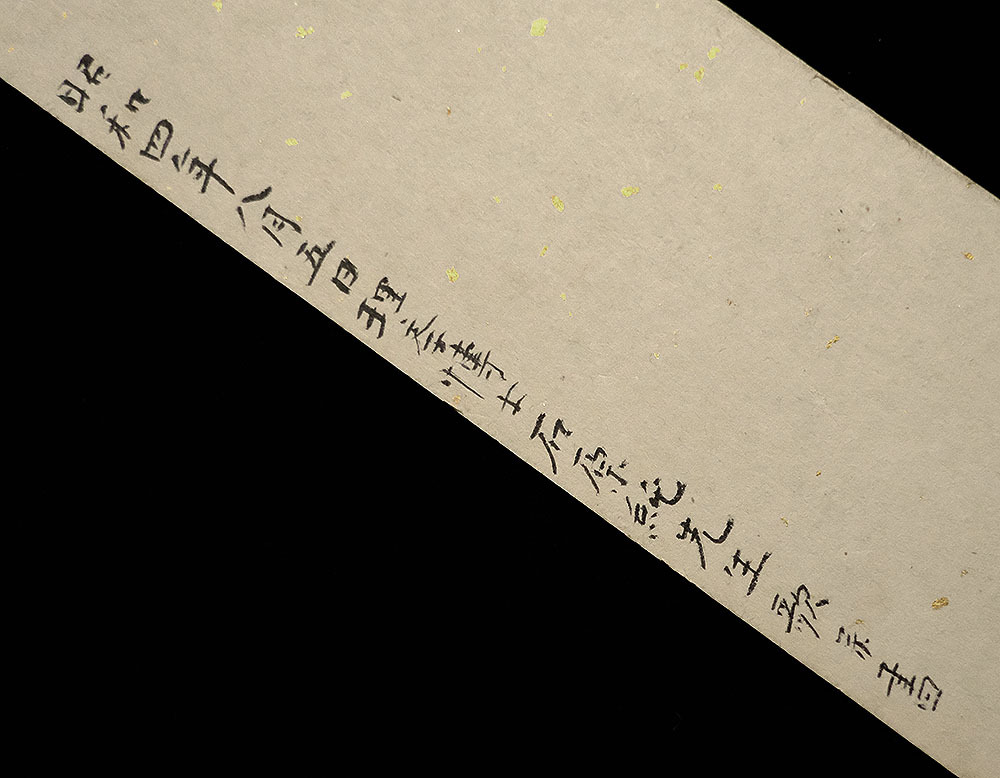 昭和四年八月五日理学博士石原純先生歌並書